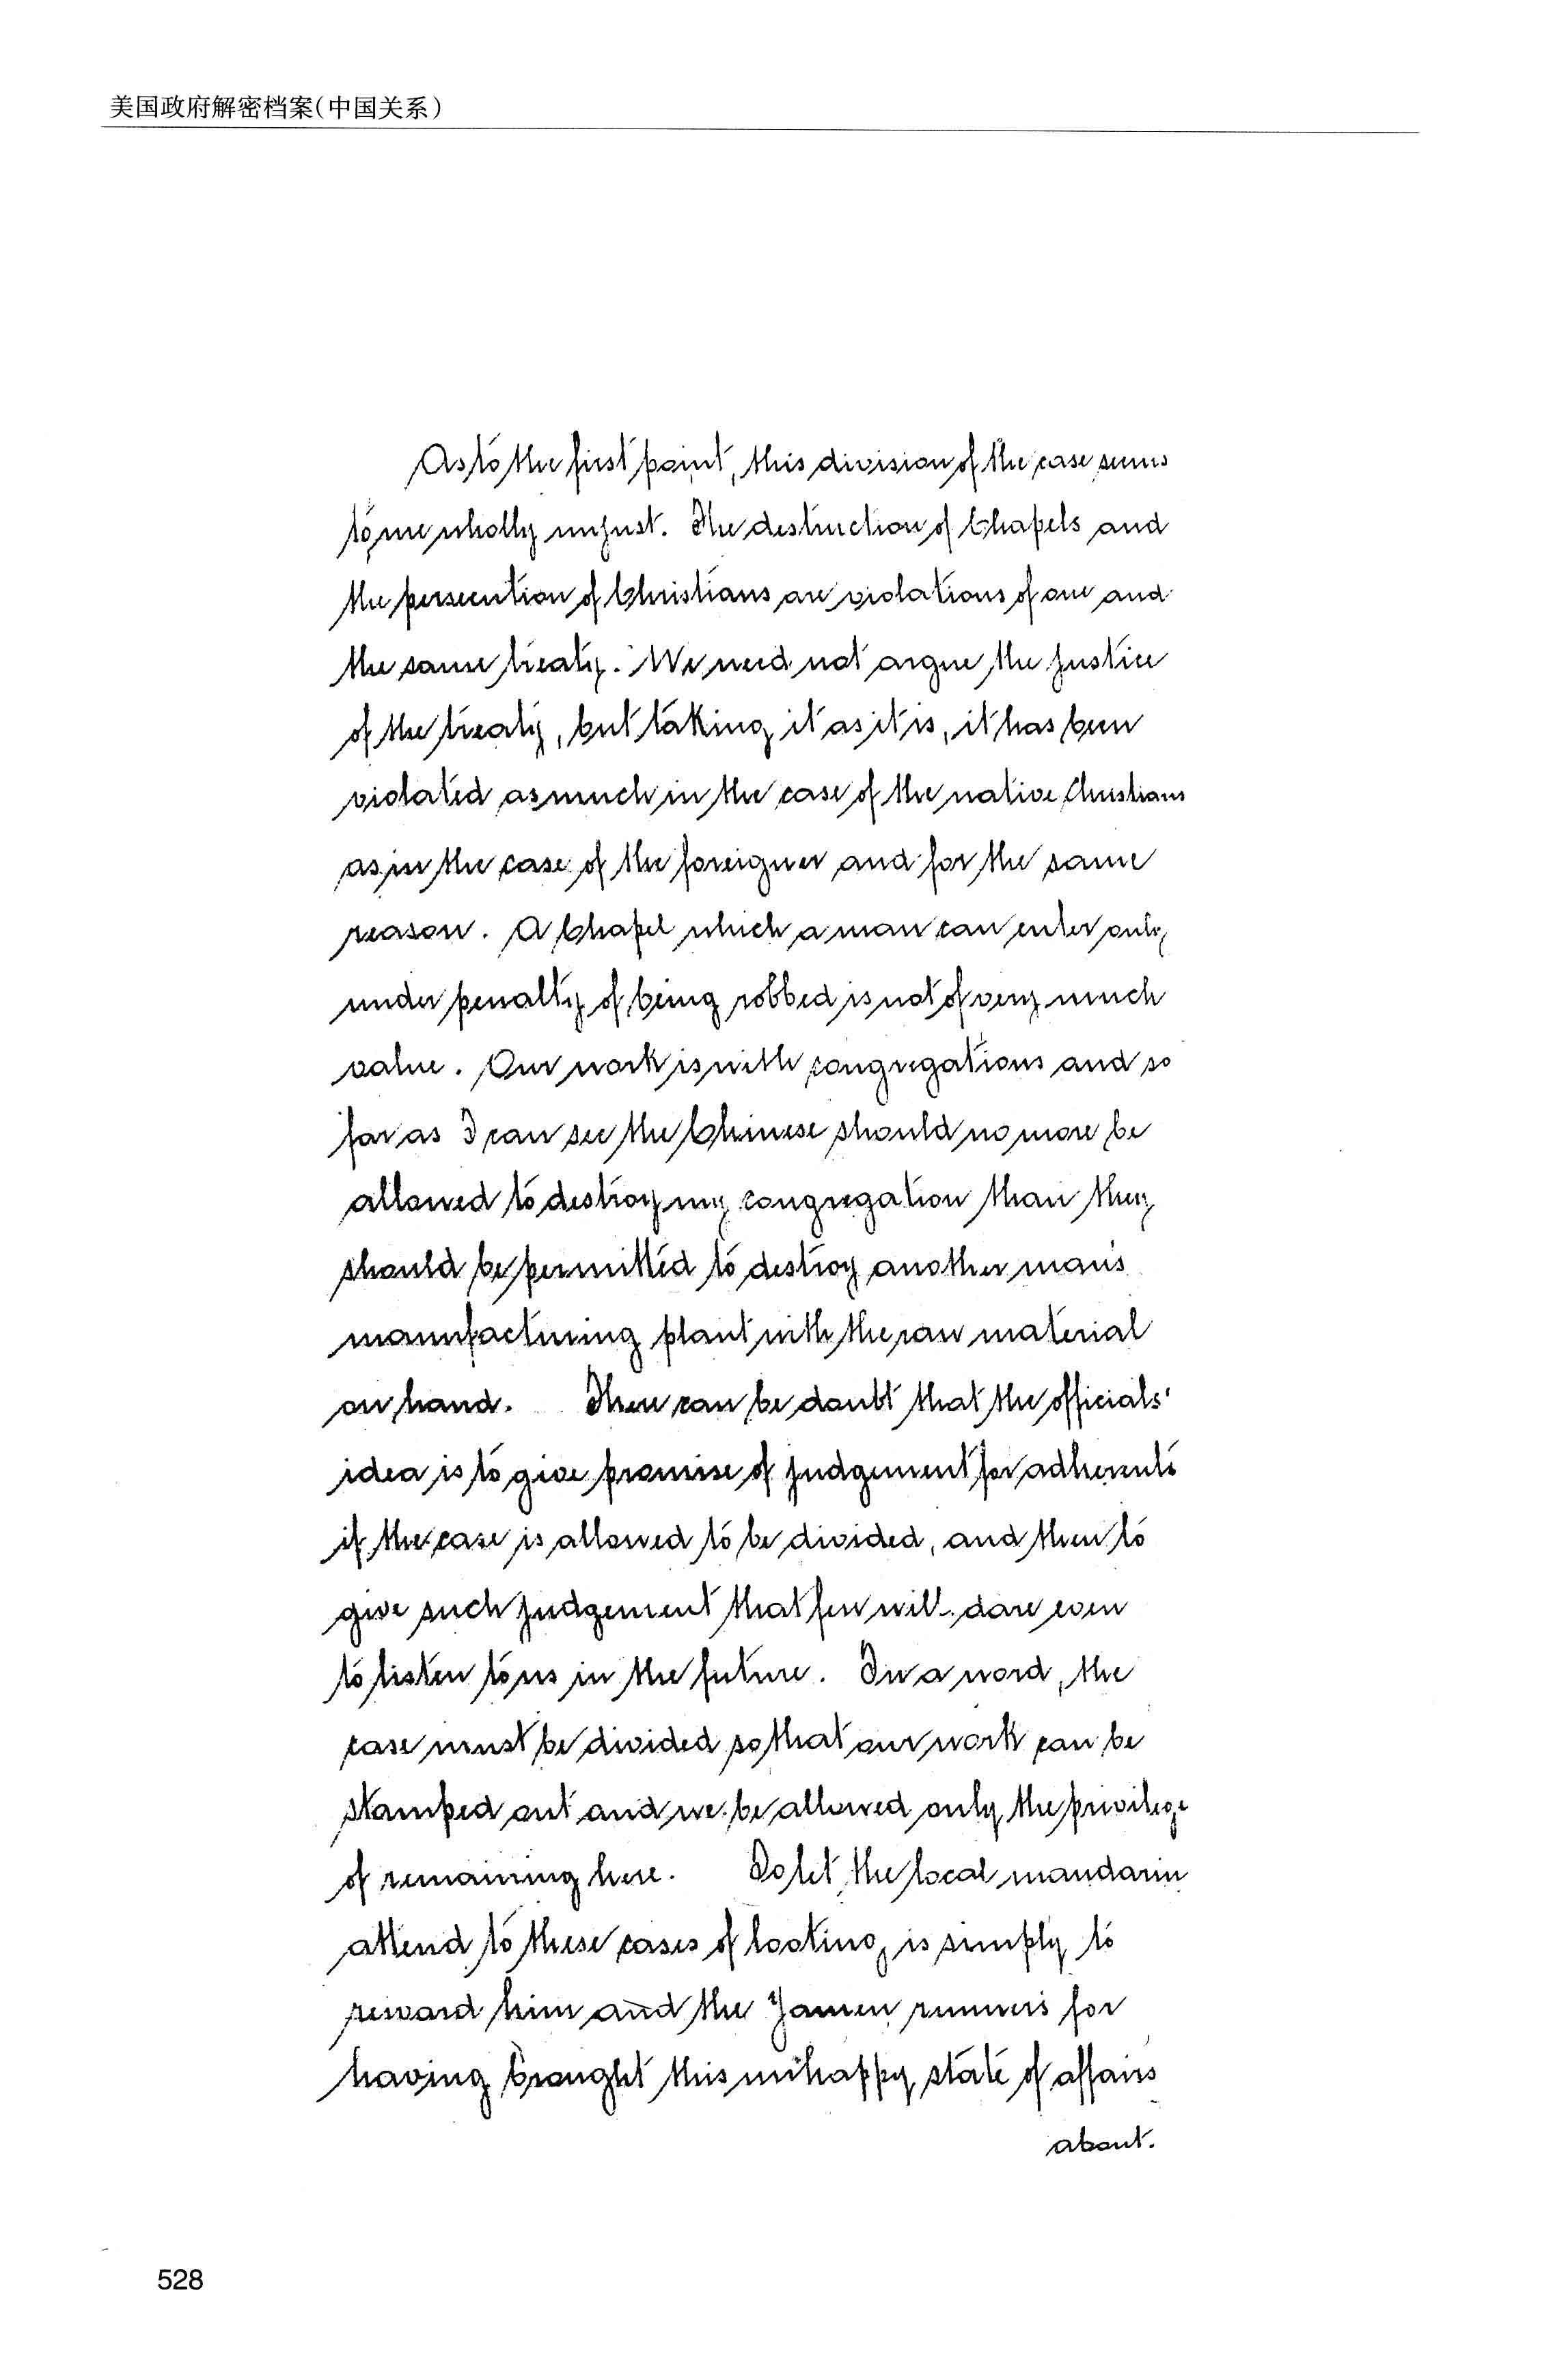 美国政府解密档案(中国关系)
As to the first point, this division of the case seems
to me wholly unjust. The destruction of Chapels and
the persecution of Christians are violations of one and
the same treaty. We need not argue the justice
of the treaty, but taking it as it is, it has been
violated as much in the case of the native Christians
as in the case of the foreigner and for the same
reason. A Chapel which a man can enter only
under penalty of being robbed is not of very much
value. Our work is with congregations and so
far as I can see the Chinese should no more be
allowed to destroy my congregation than they
should be permitted to destroy another man's
manufacturing plant with the raw material
on hand. There can be doubt that the officials'
idea is to give promise of judgement for adherents
if the case is allowed to be divided, and then to
give such judgement that few will dare even
to listen to us in the future. In a word, the
case must be divided so that our work can be
stamped out and we be allowed only the privilege
of remaining here. To let the local mandarin
attend to these cases of looting is simply to
reward him and the Yamen runners for
having brought this unhappy state of affairs
about.
528